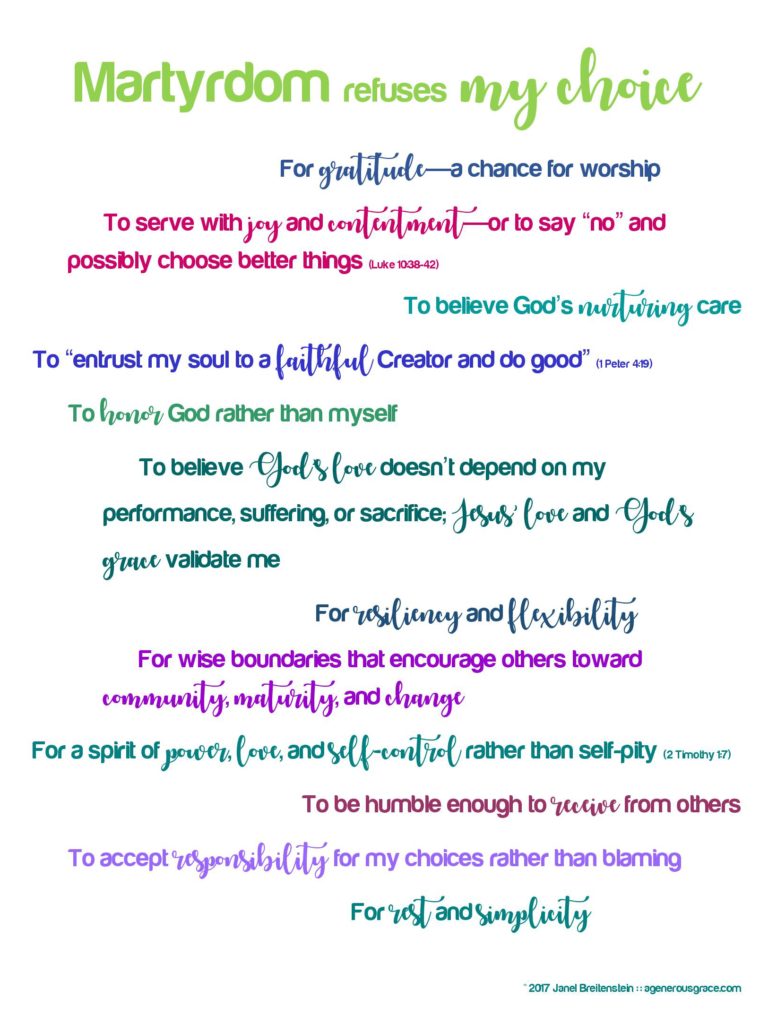 Martyrdom refuses my choice
For gratitude—a chance for worship
To serve with joy and contentment—or to say “no” and
possibly choose better things (Luke 10:38-42)
To believe God’s nurturing care
To “entrust my soul to a faithful Creator and do good” (1 Peter 4:19)
To honor God rather than myself
To believe God’s love doesn’t depend on my
performance, suffering, or sacrifice; Jesus’ love and God’s
grace validate me
For resiliency and flexibility
For wise boundaries that encourage others toward
community, maturity, and change
For a spirit of power, love, and self-control rather than self-pity (2 Timothy 1:7)
To be humble enough to receive from others
To accept responsibility for my choices rather than blaming
For rest and simplicity
© 2017 Janel Breitenstein :: agenerousgrace.com